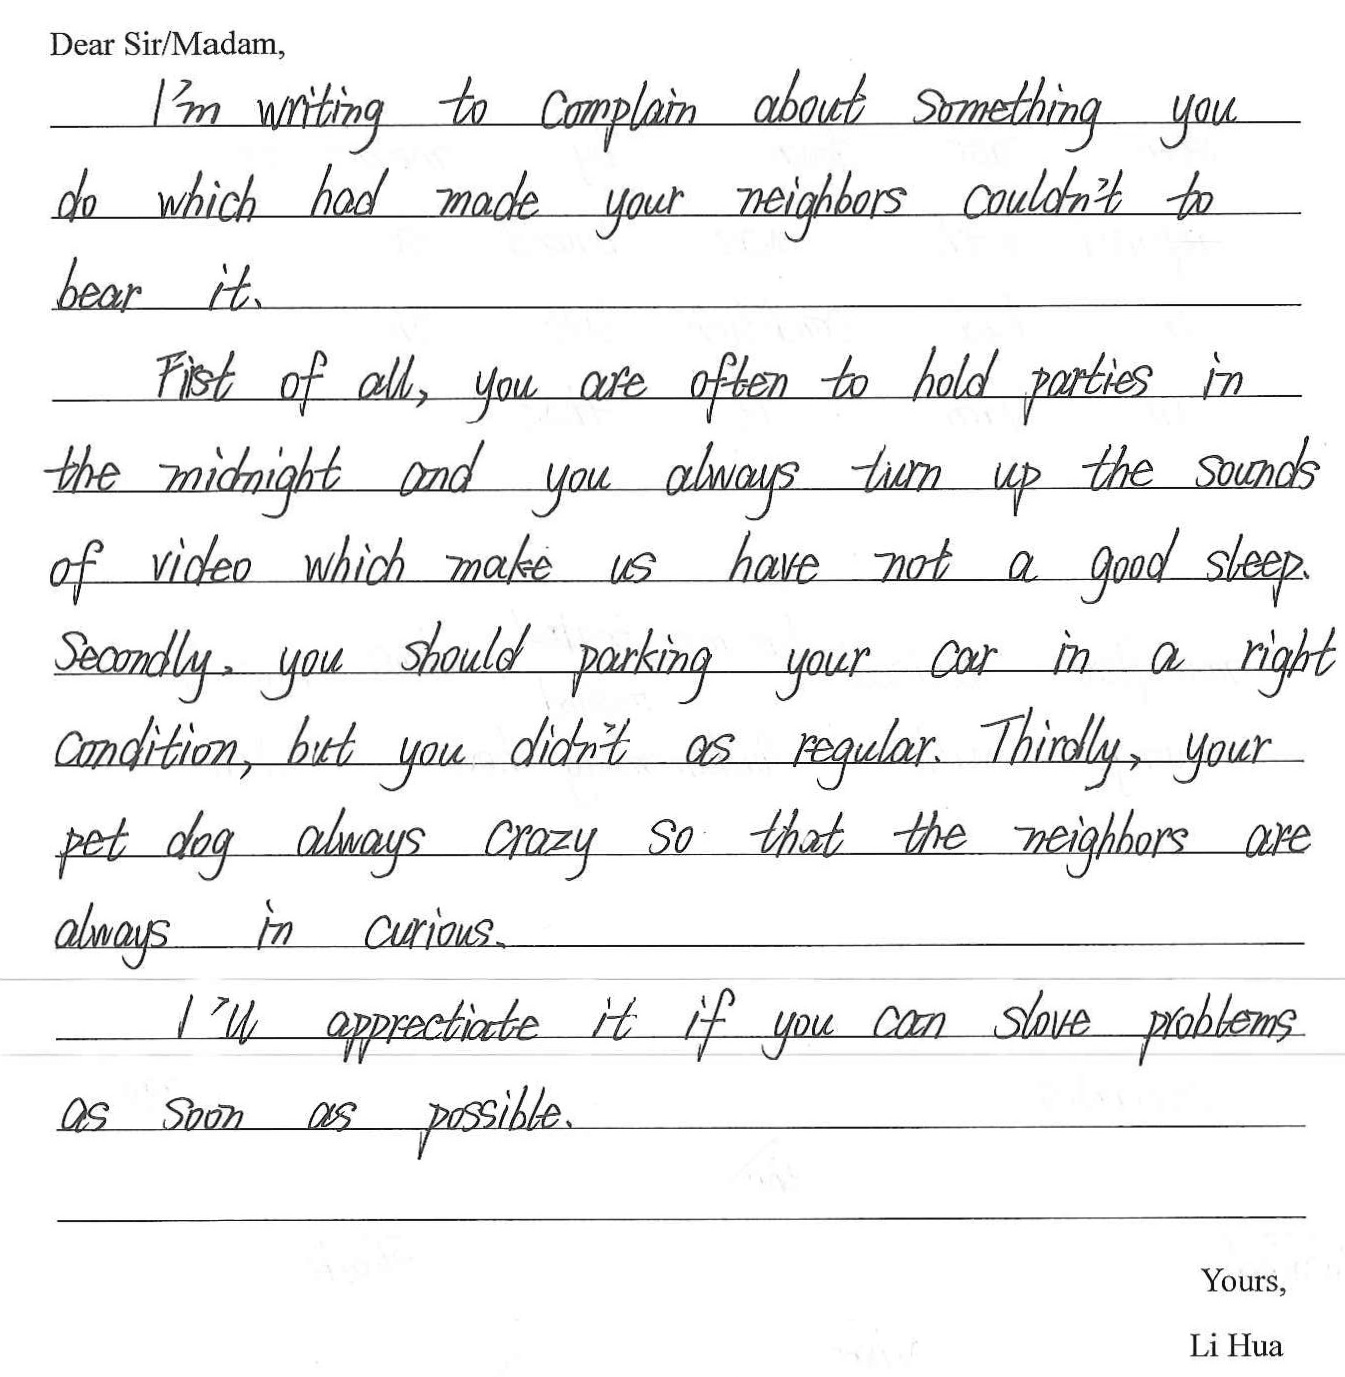 Dear Sir/Madam,
I'm writing to complain about something you
do which had made your neighbors couldn't to
bear it.
Fist of all, you are often to hold parties in
the midnight and you always turn up the sounds
of video which make us have not a good sleep.
Secondly, you should parking your car in a right
condition, but you didn't as regular. Thirdly, your
pet dog always crazy so that the neighbors are
always in curious.
I'll apprectiate it if you can slove problems
as soon as possible.
Yours,
Li Hua